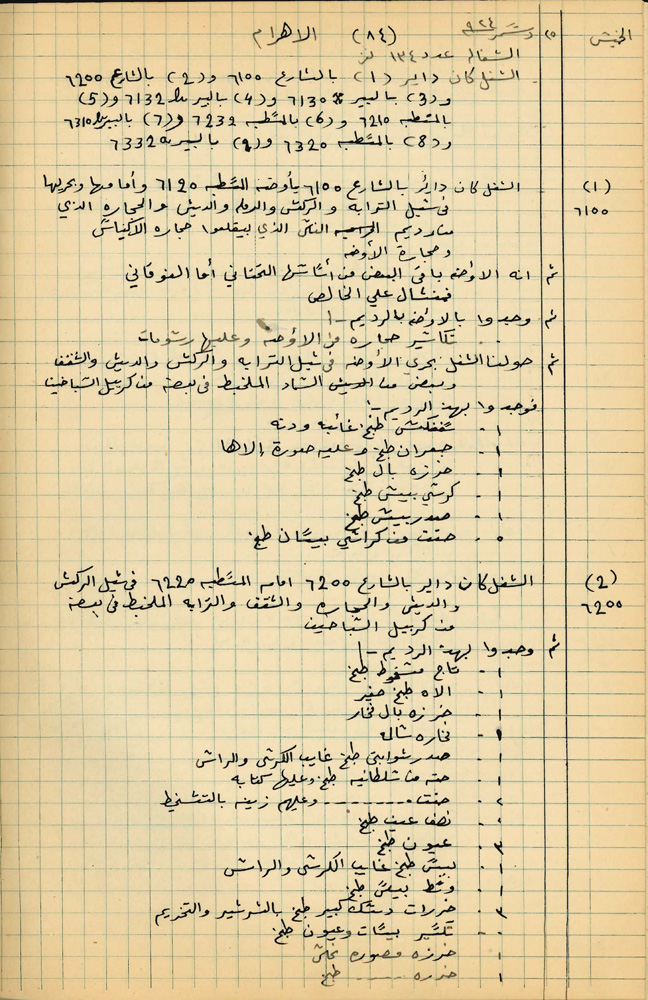 الخميس ٢٥ دسمبر ٩٢٤ (٨٤) الاهرام
الشغاله عدد ١٣٤ نفر
الشغل كان داير (١) بالشارع ٦١٠٠ و(٢) بالشارع ٦٢٠٠
و(٣) بالبير ٦١٣٥ و(٤) بالبير ٦١٣٢ و(٥)
بالمسطبه ٦٢١٥ و(٦) بالمسطبه ٦٢٣٢ و(٧) بالبير ٦٣١٥
و(٨) بالمسطبه ٦٣٢٥ و(٩) بالبير ٦٣٣٢
(١) الشغل كان داير بالشارع ٦١٠٠ بأوضة المسطبه ٦١٢٥ وأمامها وبحريها
٦١٠٠ فى شيل الترابه والركش والرمله والدبش والحجاره الذي
من رديم الناس الذي بيقلعوا حجاره الاكياس
وحجارة الأوضه
ثم انه الاوضه باقى البعض من أساسها التحتاني أما الفوقاني
فمنشال علي الخالص
ثم وجدوا بالاوضه بالرديم -:
٠٠ تكاسير حجاره من الاوضه وعليها رسومات
ثم حولنا الشغل بحري الأوضه فى شيل الترابه والركش والدبش والشقف
وبعض من الساد الملخبط فى بعضه من كربيل السباخين
فوجدوا بهذ الرديم -:
١ - طبخ غائبه ودنه
١ - جعران طبخ وعليه صورة إلاها
١ - خرزه بال طبخ
١ - كرسي بيبس طبخ
١ - صدر بيبس طبخ
٥ - حتت من كراسي بيسان طبخ
(٢) الشغل كان داير بالشارع ٦٢٠٠ امام المسطبه ٦٢٢٥ فى شيل الركش
٦٢٠٠ والدبش والحجاره والشقف والترابه الملخبط فى بعضه
من كربيل السباخين
ثم وجدوا بهذ الرديم -:
١ - تاج طبخ
١ - الاه طبخ صغير
١ - خرزه بال فخار
١ - فخاره
١ - صدر شوابتي طبخ غايب الكرسي والراس
١ - حته من سلطانيه طبخ وعليها كتابه
٢ - حتت وعليهم زينه
١ - نصف عين طبخ
٣ - عيون طبخ
١ - بيس طبخ غايب الكرسي والراس
١ - وسط بيس طبخ
٣ - خرزات كبير طبخ بالشرشير والتخريم
٠٠ - تكسير بيسات وعيون طبخ
١ خرزه مصوره
١ خرزه طبخ